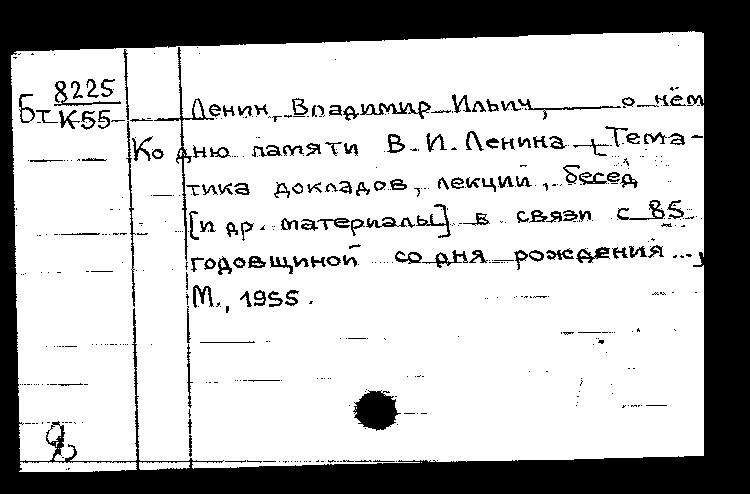 Бт 8225
К55
Ленин, Владимир Ильич, о нём
Ко дню памяти В.И.Ленина. [Тема-
тика докладов, лекций, бесед
[и др. материалы] в связи с 85
годовщиной со дня рождения...,
М., 1955.